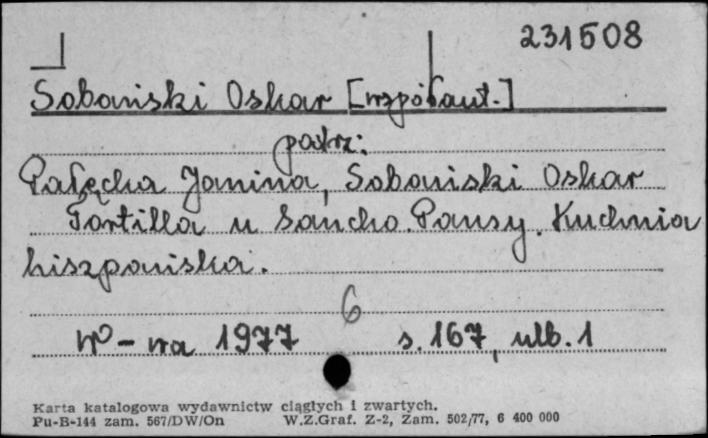 231508
Sobański Oskar [współaut.]
patrz:
Pałęcka Janina, Sobański Oskar
Tortilla u Sancho Pansy. Kuchnia
hiszpańska.
6
W-wa 1977 s. 167, nlb. 1
Karta katalogowa wydawnictw ciągłych i zwartych.
Pu-B-144 zam. 567/DW/On W.Z.Graf. Z-2, Zam. 502/77, 6 400 000